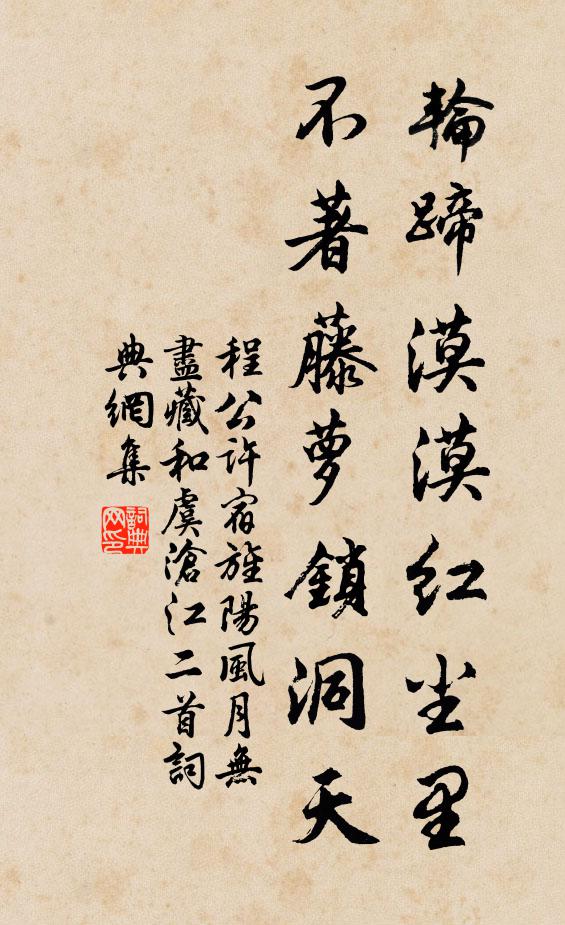 輪蹄漠漠红尘里
不著藤萝鎖洞天
程公许宿旌陽風月無
盡藏和虞滄江二首詞
典網集
詞典
网印